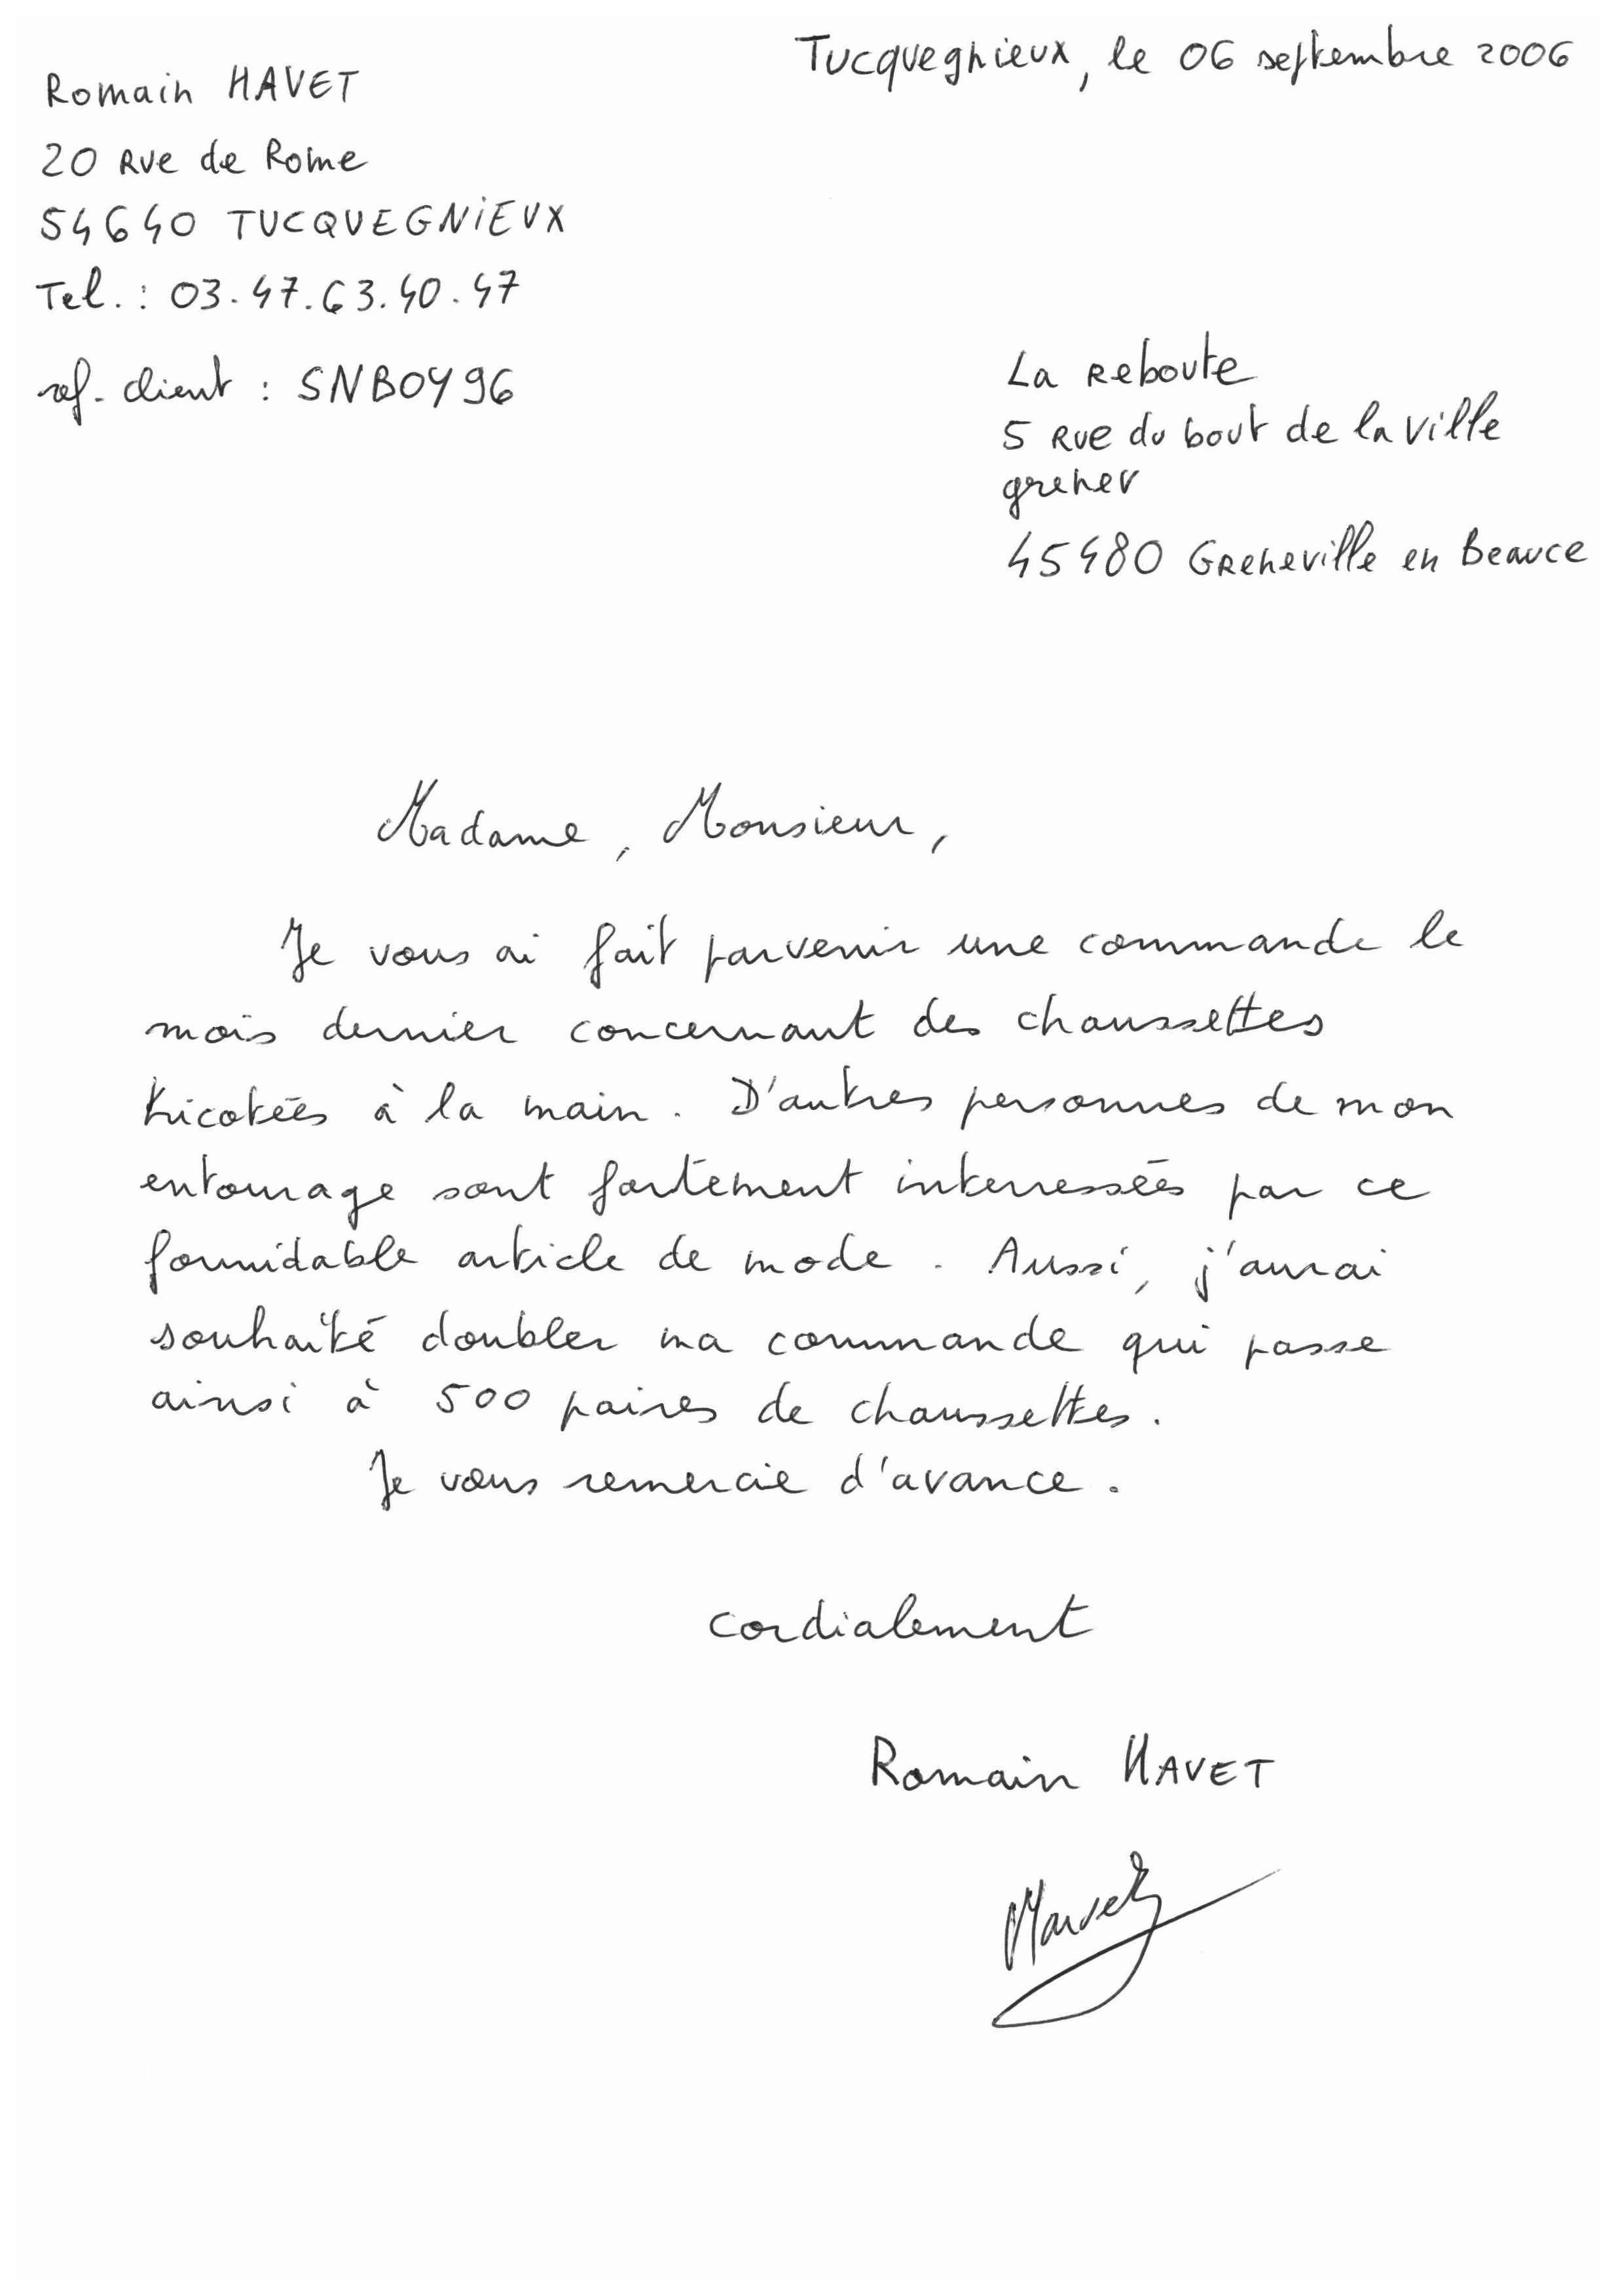 Tucquegnieux, le 06 septembre 2006
Romain HAVET
20 Rue de Rome
54640 TUCQUEGNIEUX
Tel. : 03.47.63.40.47
ref. client : SNBOY96
La Reboute
5 Rue du bout de la ville
grenev
45480 Greneville en Beauce
Madame, Monsieur,
Je vous ai fait parvenir une commande le
mois dernier concernant des chaussettes
tricotées à la main. D'autres personnes de mon
entourage sont fortement interressées par ce
formidable article de mode. Aussi, j'aurai
souhaité doubler ma commande qui passe
ainsi à 500 paires de chaussettes.
Je vous remercie d'avance.
Cordialement
Romain HAVET